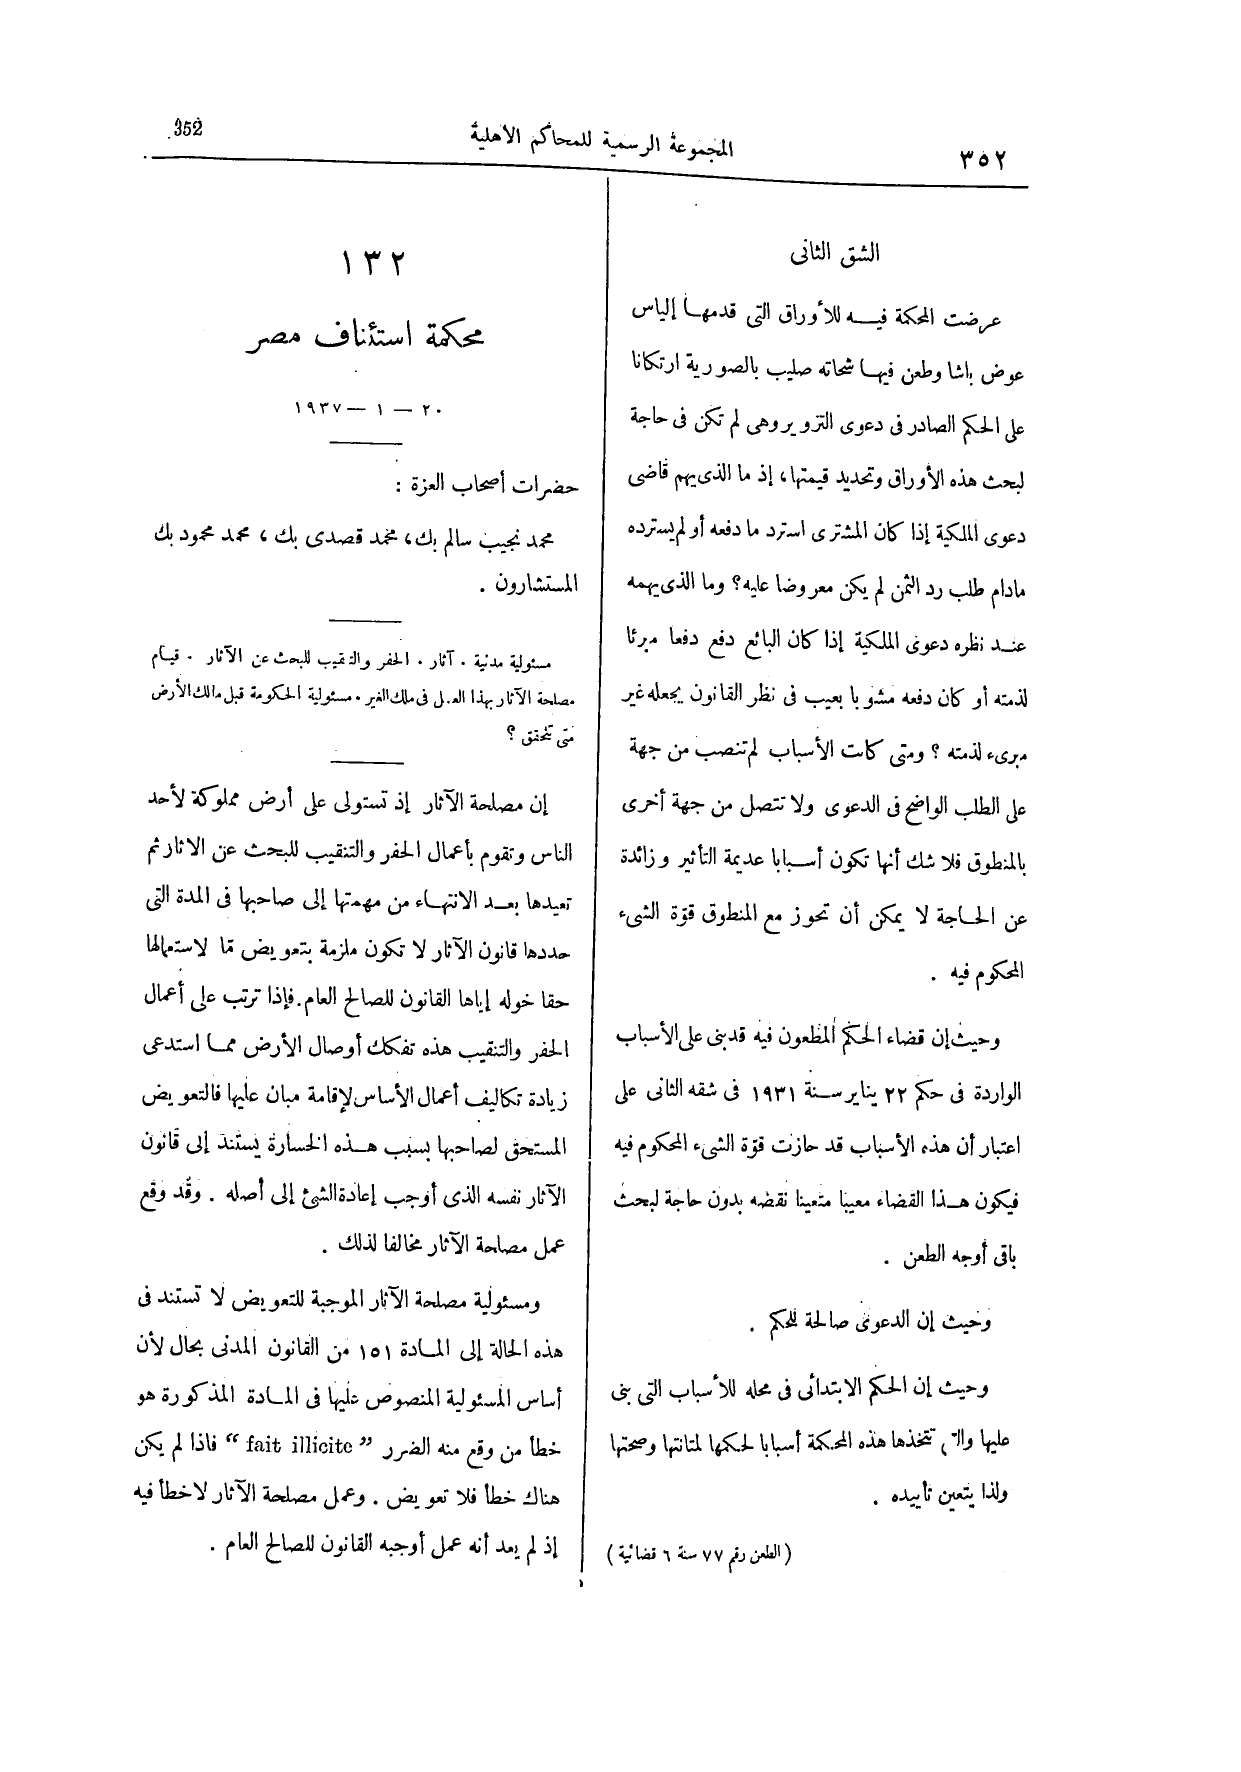 ٣٥٢
المجموعة الرسمية للمحاكم الأهلية
352
الشق الثانى
عرضت المحكمة فيه للأوراق التى قدمها إلياس
عوض باشا وطعن فيها شحاته صليب بالصورية ارتكانا
على الحكم الصادر فى دعوى التزوير وهى لم تكن فى حاجة
لبحث هذه الأوراق وتحديد قيمتها، إذ ما الذى يهم قاضى
دعوى الملكية إذا كان المشترى استرد ما دفعه أو لم يسترده
مادام طلب رد الثمن لم يكن معروضا عليه؟ وما الذى يهمه
عند نظره دعوى الملكية إذا كان البائع دفع دفعا مبرئا
لذمته أو كان دفعه مشوبا بعيب فى نظر القانون يجعله غير
مبرىء لذمته ؟ ومتى كانت الأسباب لم تنصب من جهة
على الطلب الواضح فى الدعوى ولا تتصل من جهة أخرى
بالمنطوق فلا شك أنها تكون أسبابا عديمة التأثير وزائدة
عن الحاجة لا يمكن أن تحوز مع المنطوق قوّة الشىء
المحكوم فيه .
وحيث إن قضاء الحكم المطعون فيه قد بنى على الأسباب
الواردة فى حكم ٢٢ يناير سنة ١٩٣١ فى شقه الثانى على
اعتبار أن هذه الأسباب قد حازت قوّة الشىء المحكوم فيه
فيكون هذا القضاء معيبا متعينا نقضه بدون حاجة لبحث
باقى أوجه الطعن .
وحيث إن الدعوى صالحة للحكم .
وحيث إن الحكم الابتدائى فى محله للأسباب التى بنى
عليها والتى تتخذها هذه المحكمة أسبابا لحكمها لمتانتها وصحتها
ولذا يتعين تأييده .
(الطعن رقم ٧٧ سنة ٦ قضائية)
١٣٢
محكمة استئناف مصر
٢٠ — ١ — ١٩٣٧
حضرات أصحاب العزة :
محمد نجيب سالم بك، محمد قصدى بك ، محمد محمود بك
المستشارون .
مسئولية مدنية . آثار . الحفر والتنقيب للبحث عن الآثار . قيام
مصلحة الآثار بهذا العمل فى ملك الغير . مسئولية الحكومة قبل مالك الأرض
متى تتحقق ؟
إن مصلحة الآثار إذ تستولى على أرض مملوكة لأحد
الناس وتقوم بأعمال الحفر والتنقيب للبحث عن الاثار ثم
تعيدها بعد الانتهاء من مهمتها إلى صاحبها فى المدة التى
حددها قانون الآثار لا تكون ملزمة بتعويض مّا لاستعمالها
حقا خوله إياها القانون للصالح العام. فإذا ترتب على أعمال
الحفر والتنقيب هذه تفكك أوصال الأرض مما استدعى
زيادة تكاليف أعمال الأساس لإقامة مبان عليها فالتعويض
المستحق لصاحبها بسبب هذه الخسارة يستند إلى قانون
الآثار نفسه الذى أوجب إعادة الشئ إلى أصله . وقد وقع
عمل مصلحة الآثار مخالفا لذلك .
ومسئولية مصلحة الآثار الموجبة للتعويض لا تستند فى
هذه الحالة إلى المادة ١٥١ من القانون المدنى بحال لأن
أساس المسئولية المنصوص عليها فى المادة المذكورة هو
خطأ من وقع منه الضرر "fait illicite" فاذا لم يكن
هناك خطأ فلا تعويض . وعمل مصلحة الآثار لا خطأ فيه
إذ لم يعد أنه عمل أوجبه القانون للصالح العام .